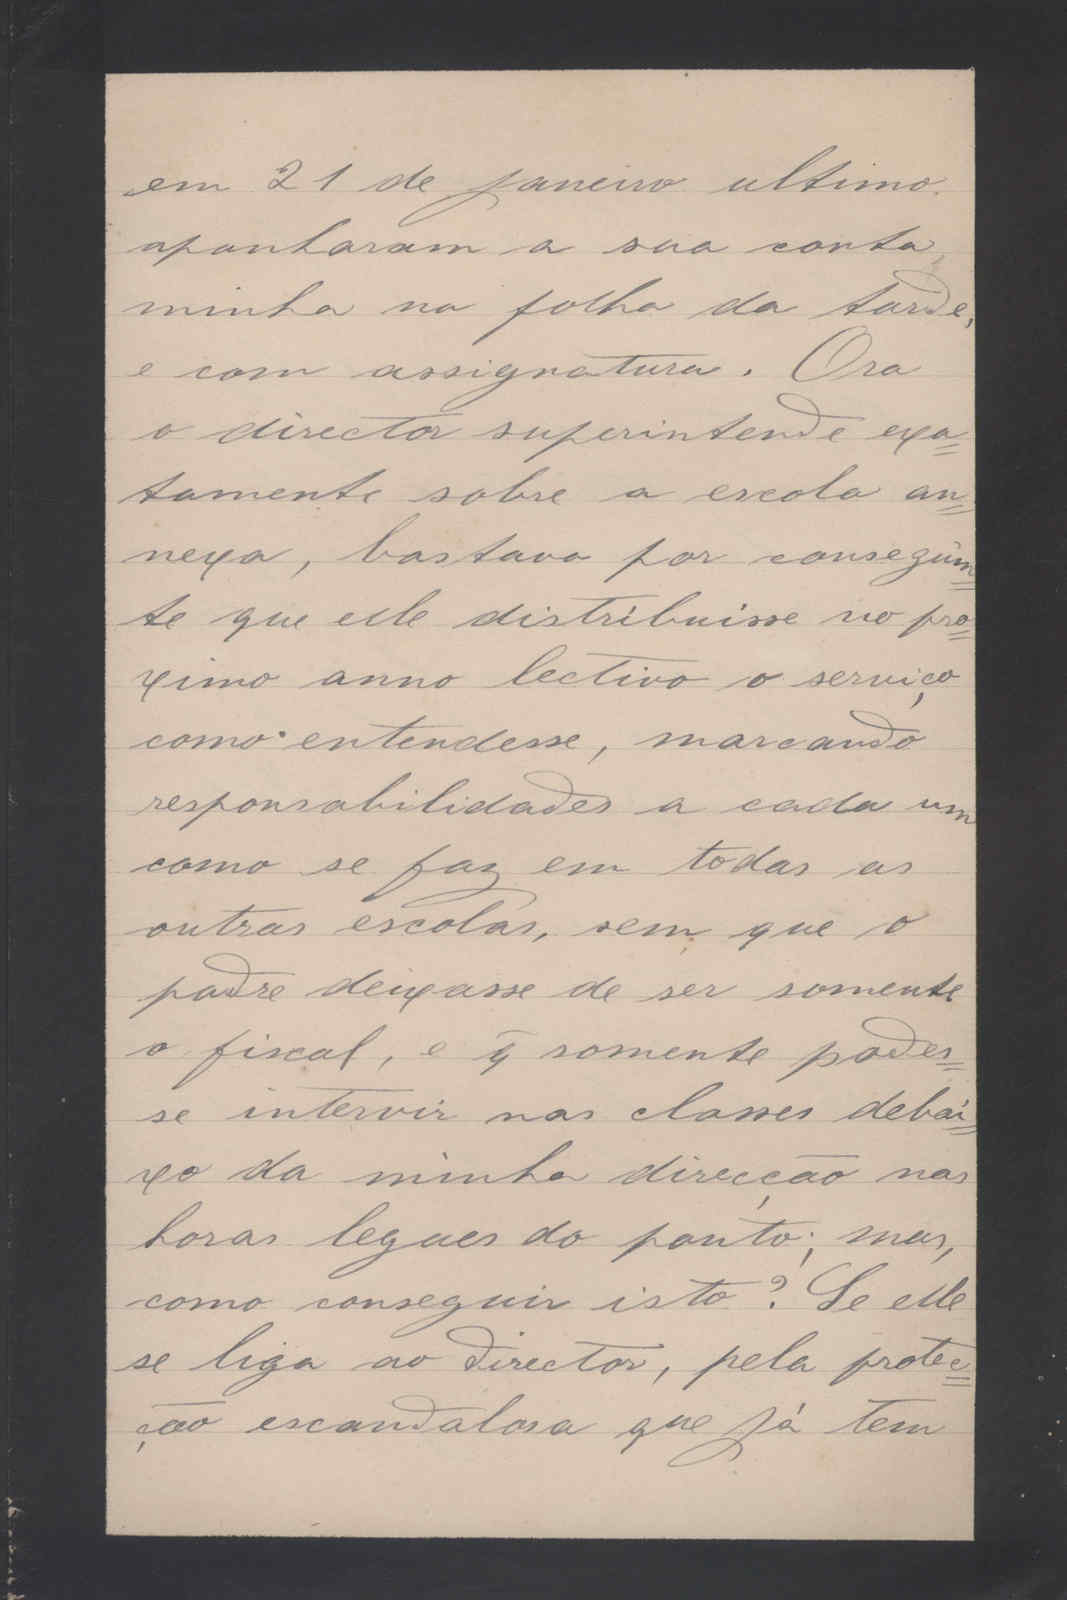 em 21 de janeiro ultimo.
apanharam a sua conta,
minha na folha da tarde,
e com assignatura. Ora
o director superintende exa=
tamente sobre a escola an=
nexa, bastava por conseguin=
te que elle distribuisse no pro=
ximo anno lectivo o serviço
como entendesse, marcando
responsabilidades a cada um
como se faz em todas as
outras escolas, sem que o
padre deixasse de ser somente
o fiscal, e q̃ somente podes=
se intervir nas classes debai=
xo da minha direcção nas
horas legaes do ponto; mas,
como conseguir isto? Se elle
se liga ao director, pela protec=
ção escandalosa que já tem